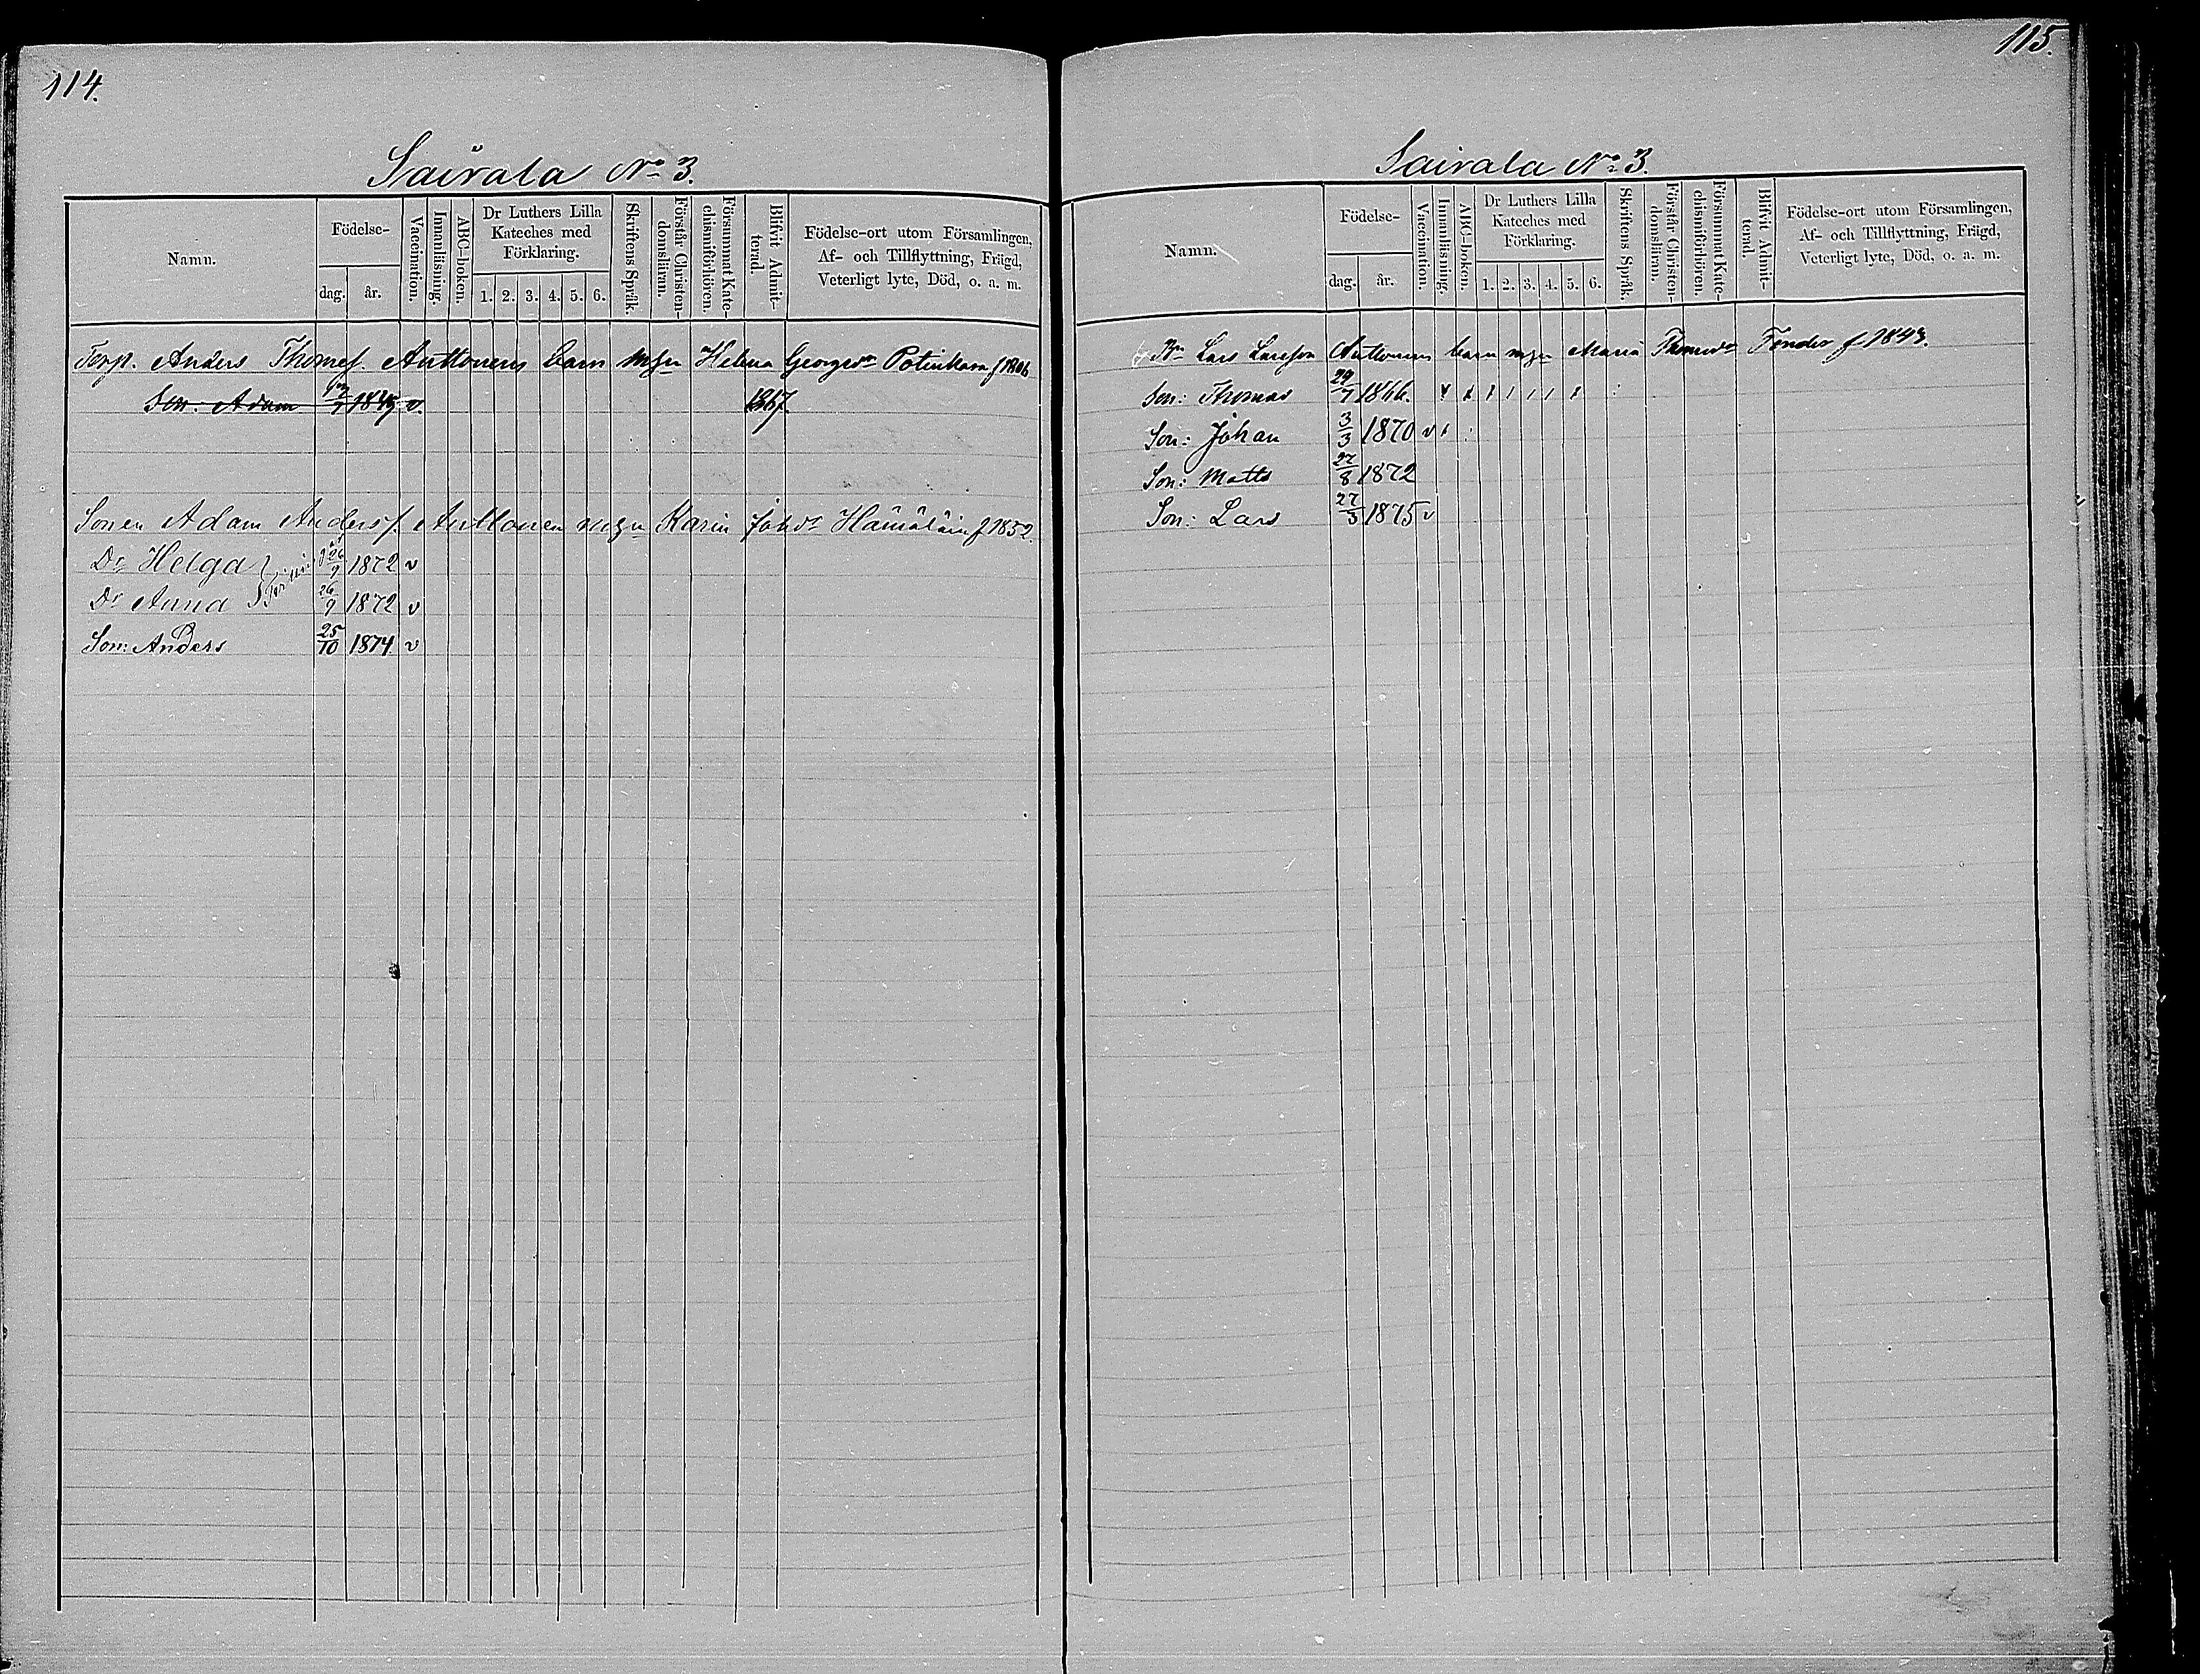 114.
Sairala No 3.
Namn.
Födelse-
dag.
år.
Vaccination.
Innanläsning.
ABC-boken.
Dr Luthers Lilla
Kateches med
Förklaring.
1. 2. 3. 4. 5. 6.
Skriftens Språk.
Förstår Christen-
domsläran.
Försummat Kate-
chismiförhören.
Blifvit Admit-
terad.
Födelse-ort utom Församlingen,
Af- och Tillflyttning, Frägd,
Veterligt lyte, Död, o. a. m.
Torp. Anders Thomef. Anttonens barn m hu Helena Georgedr f 1806
Son: Adam 1849 v 1867.
Sonen Adam Andersf. Anttonen Karin Johdr Hämäläin f 1852.
Dr Helga 26/9 1872 v
Dr Anna 26/9 1872 v
Son: Anders 25/10 1874 v
115.
Sairala No 3.
Namn.
Födelse-
dag.
år.
Vaccination.
Innanläsning.
ABC-boken.
Dr Luthers Lilla
Kateches med
Förklaring.
1. 2. 3. 4. 5. 6.
Skriftens Språk.
Förstår Christen-
domsläran.
Försummat Kate-
chismiförhören.
Blifvit Admit-
terad.
Födelse-ort utom Församlingen,
Af- och Tillflyttning, Frägd,
Veterligt lyte, Död, o. a. m.
Lars Larsson Anttonens barn Maria Thomasdr f 1843.
Son: Thomas 29/7 1866.
Son: Johan 3/3 1870 v
Son: Matts 27/8 1872
Son: Lars 27/3 1875 v